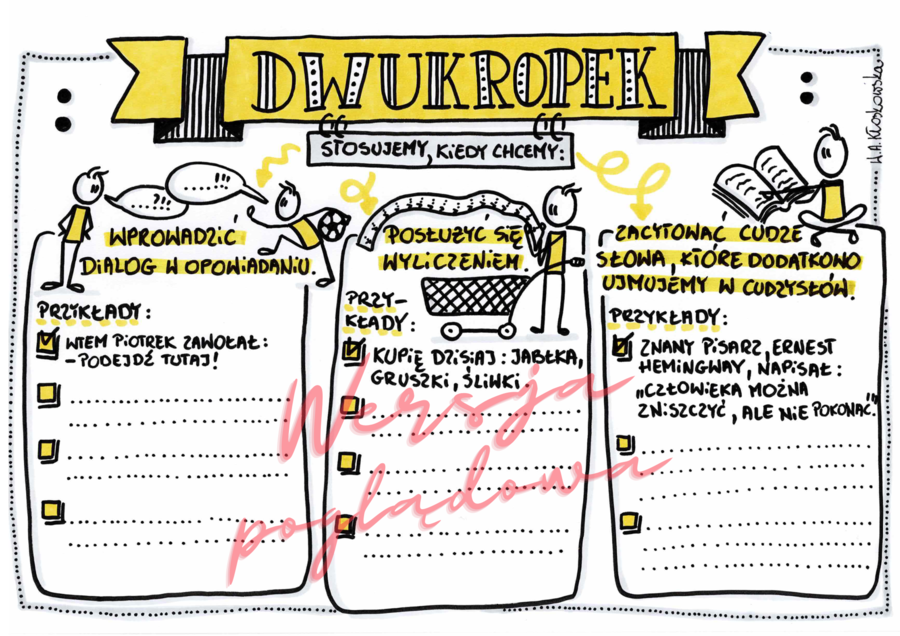 DWUKROPEK
STOSUJEMY, KIEDY CHCEMY:
WPROWADZIĆ
DIALOG W OPOWIADANIU.
PRZYKŁADY:
WTEM PIOTREK ZAWOŁAŁ:
– PODEJDŹ TUTAJ!
POSŁUŻYĆ SIĘ
WYLICZENIEM.
PRZY-
KŁADY:
KUPIĘ DZISIAJ: JABŁKA,
GRUSZKI, ŚLIWKI.
ZACYTOWAĆ CUDZE
SŁOWA, KTÓRE DODATKOWO
UJMUJEMY W CUDZYSŁÓW.
PRZYKŁADY:
ZNANY PISARZ, ERNEST
HEMINGWAY, NAPISAŁ:
„CZŁOWIEKA MOŻNA
ZNISZCZYĆ, ALE NIE POKONAĆ."
H.A. Kłoskowska
Wersja
poglądowa